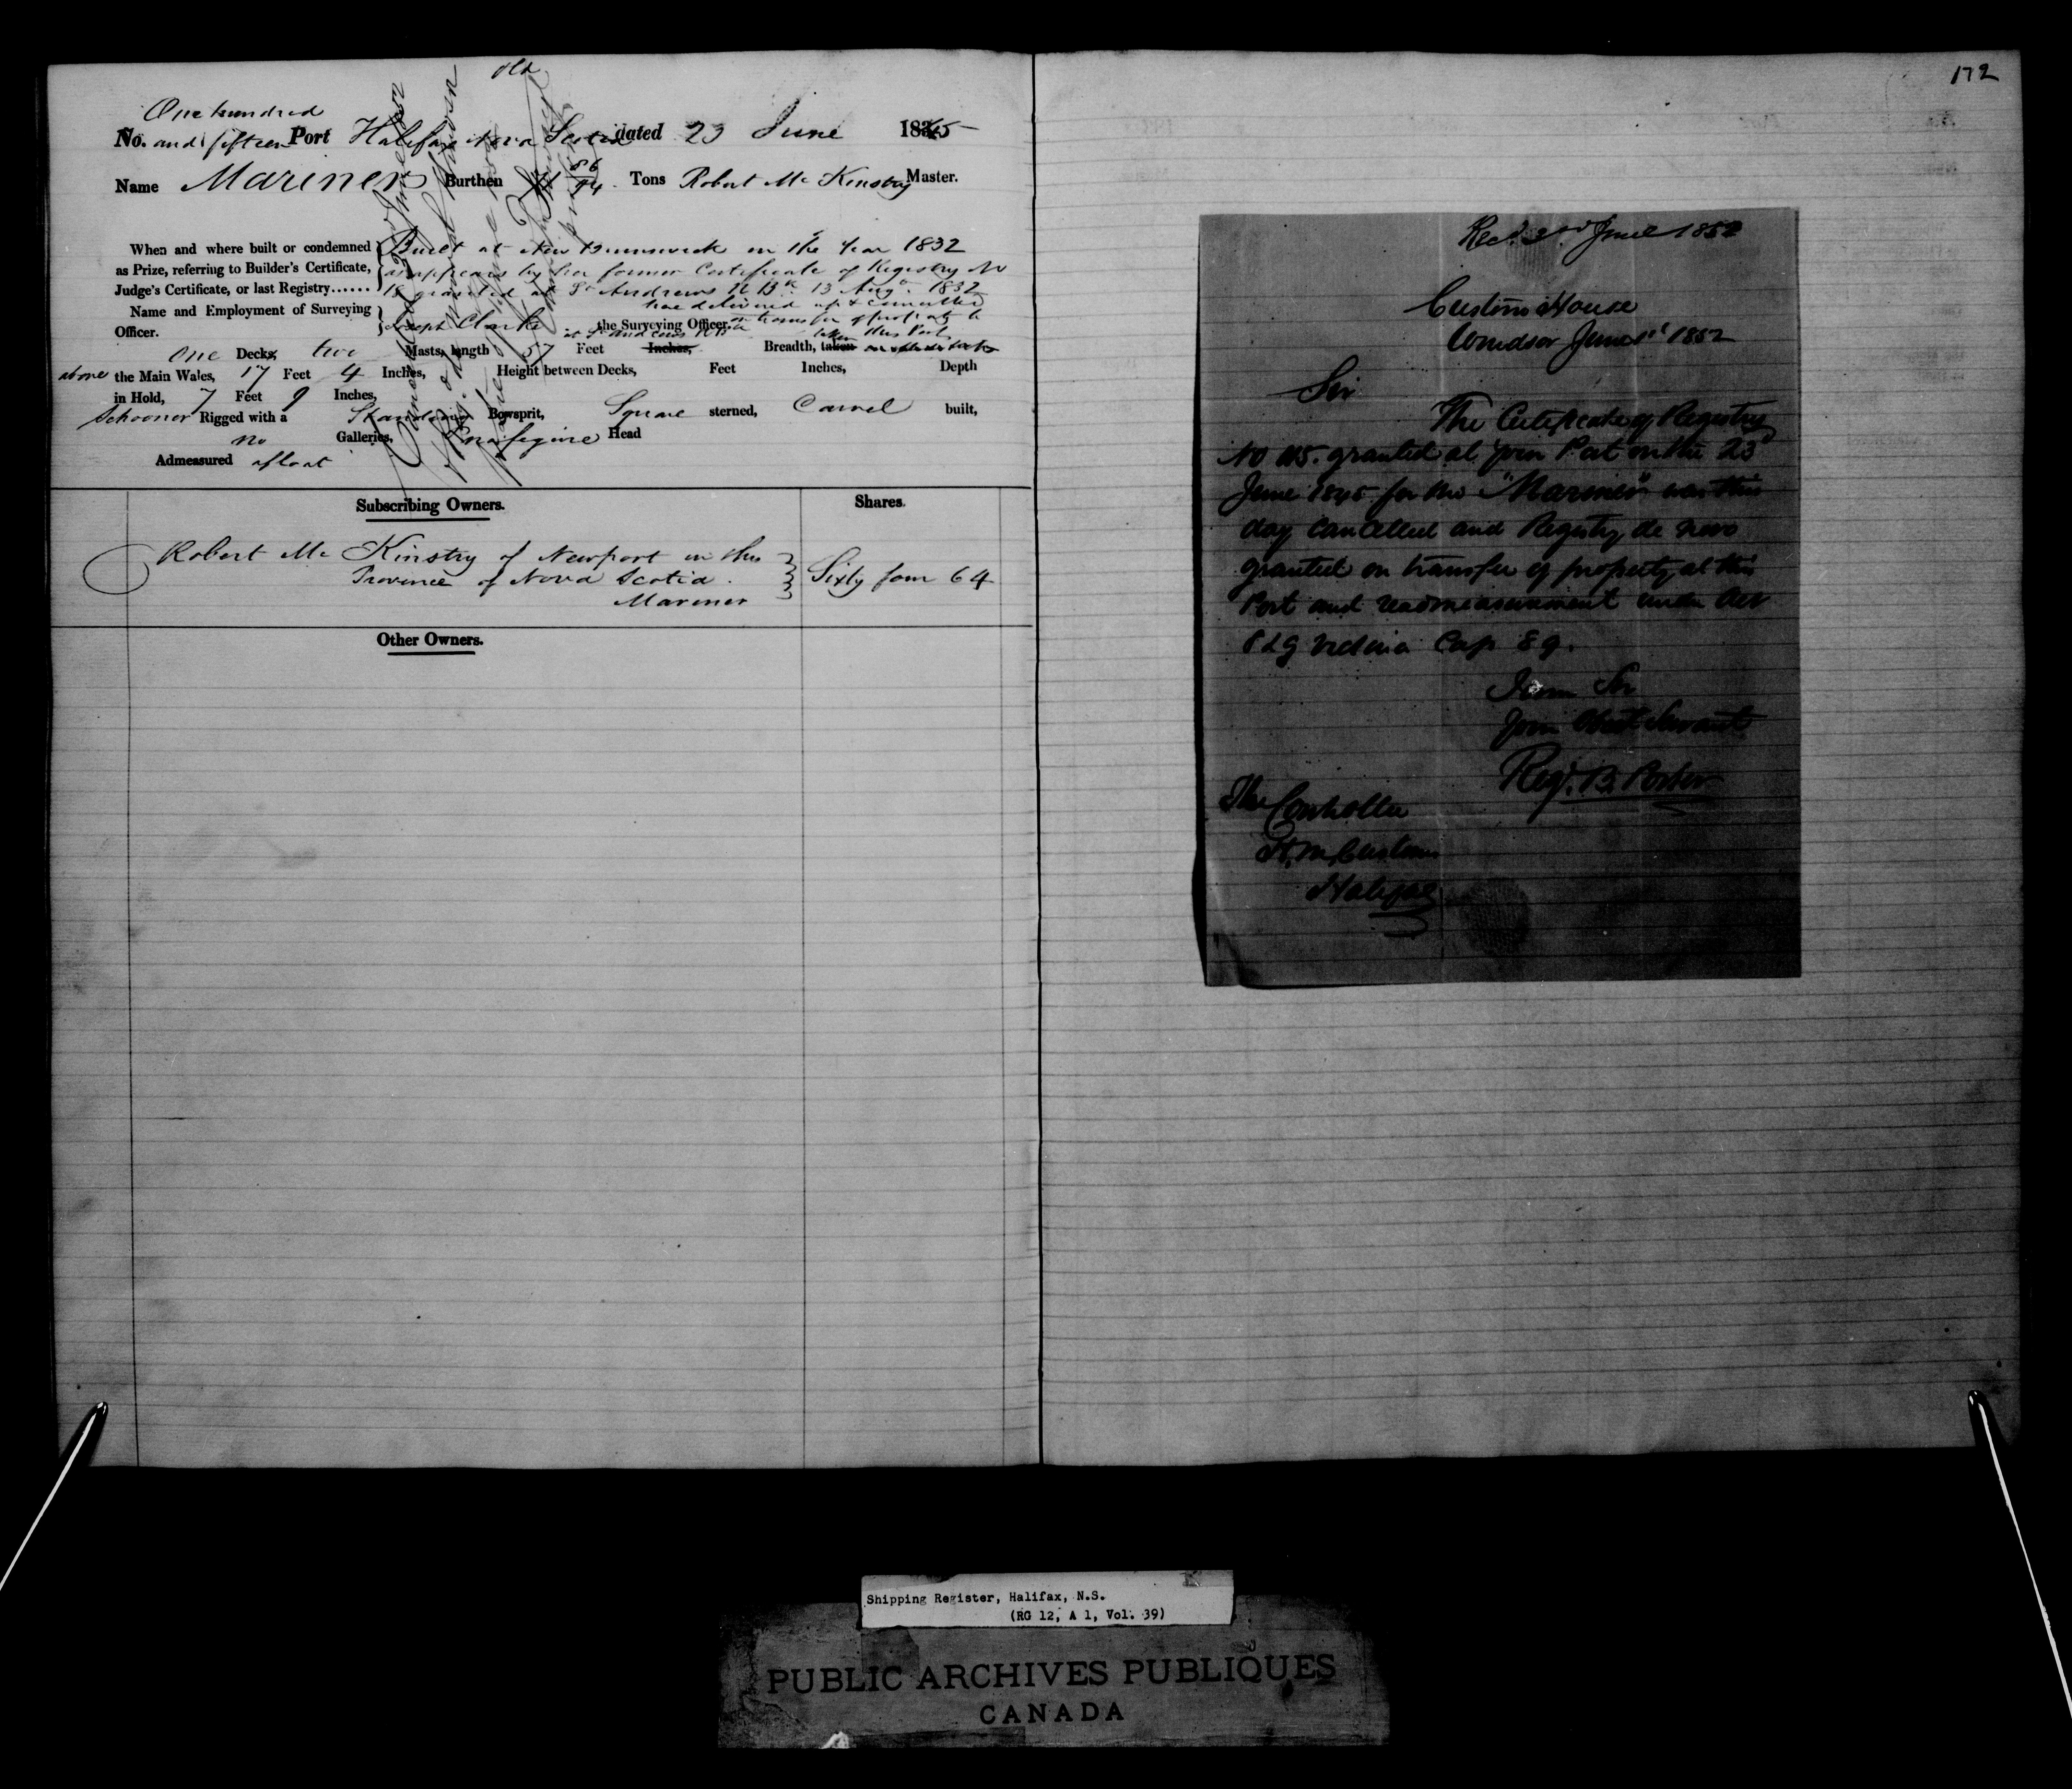 172
old
One hundred
No. and fifteen Port Halifax Nova Scotia dated 23 June 1845
Name Mariner Burthen 86/94 Tons Robert Mc Kinstry Master.
When and where built or condemned as Prize, referring to Builder's Certificate, Judge's Certificate, or last Registry......
Built at New Brunswick in the Year 1832
as appears by her former Certificate of Registry No
18 granted at St Andrews N Bk 13 Augt 1832
now delivered up & cancelled
on transfer of property to
this Port
Name and Employment of Surveying Officer.
Joseph Clarke the Surveying Officer
at St Andrews N Bk
One Decks, two Masts, length 57 Feet Inches, Breadth, taken
above the Main Wales, 17 Feet 4 Inches, Height between Decks, Feet Inches, Depth
in Hold, 7 Feet 9 Inches,
Schooner Rigged with a Standing Bowsprit, Square sterned, Carvel built,
no Galleries, Head
Admeasured afloat
Subscribing Owners. Shares.
Robert Mc Kinstry of Newport in this
Province of Nova Scotia.
Mariner
Sixty four 64
Other Owners.
Recd. 2nd June 1852
Custom House
Windsor June 1st 1852
Sir
The Certificate of Registry
No 115. granted at your Port on the 23d
June 1845 for the "Mariner" was this
day cancelled and Registry de novo
granted on transfer of property at this
Port and readmeasurement under Act
8 & 9 Victoria Cap 89.
I am Sir
Your Obedt Servant
Regd. B. Porter
The Controller
H. M. Customs
Halifax
Shipping Register, Halifax, N.S.
(RG 12, A 1, Vol. 39)
PUBLIC ARCHIVES PUBLIQUES
CANADA